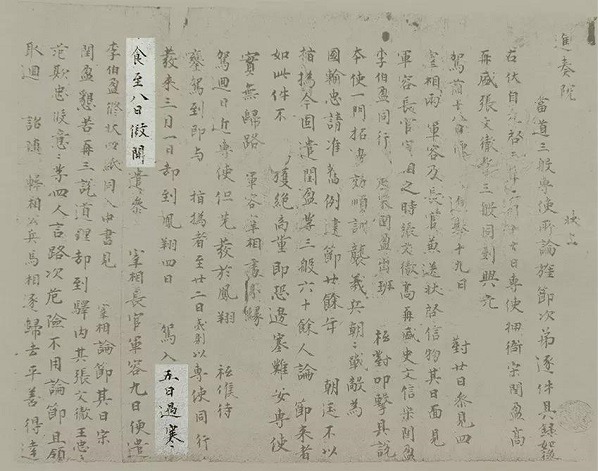 進奏院 狀上
當道三般專使所論旌節次第逐件具錄如後
右伏自光啓三年二月十七日專使押衙宋閏盈高
再盛張文徹等三般同到興元
駕前十八日 十九日 對廿日參見四
宰相兩軍容及長官兼送狀啓信物其日面見
軍容長官宰相之時張文徹高再盛史文信宋閏盈
李伯盈同行 宋閏盈出班 祗對叩擊具說
本使一門拓邊效順訓襲義兵朝朝戰敵為
國輸忠請准舊例建節廿餘年 朝廷不以
指撝今固遣閏盈等三般六十餘人論節來者
如此件不 獲絕商量即恐邊塞難安專使
實無歸路 軍容宰相處分緣
駕迴日近專使但先發於鳳翔 祗候待
鑾駕到即與 指撝者至廿二日夷則以專使同行
發來三月一日却到鳳翔四日 駕入五日遇寒
食至八日假開遣參 宰相長官軍容九日便遣
李伯盈修狀四紙同入中書見 宰相論節其日宋
閏盈懇苦再三說道理却到驛內其張文徹王忠忠
范欺忠段意意等四人言路次危險不用論節且領
取迴 詔隨韓相公兵馬相逐歸去平善得達